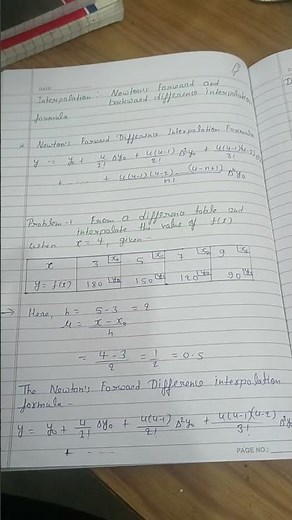 DATE
Interpolation: Newton's Forward and
backward difference interpolation
formula
* Newton's Forward Difference Interpolation Formula
y = y₀ + u/1! Δy₀ + u(u-1)/2! Δ²y₀ + u(u-1)(u-2)/3!
+ ..... + u(u-1)(u-2)...(u-n+1)/n! Δⁿy₀
Problem-1 From a difference table and
interpolate the value of f(x)
when x = 4, given -
x 3 x₀ 5 x₁ 7 x₂ 9 x₃
y = f(x) 180 y₀ 150 y₁ 120 y₂ 90 y₃
→ Here, h = 5-3 = 2
u = x - x₀/h
= 4-3/2 = 1/2 = 0.5
The Newton's Forward Difference interpolation
formula -
y = y₀ + u/1! Δy₀ + u(u-1)/2! Δ²y₀ + u(u-1)(u-2)/3! Δ³y₀
+ ....
PAGE NO.: